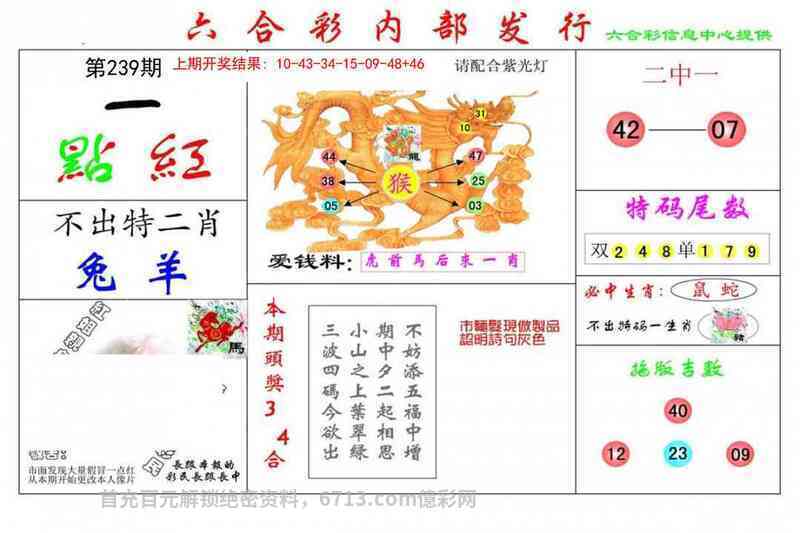 六合彩内部发行
六合彩信息中心提供
第239期
上期开奖结果：10-43-34-15-09-48+46
请配合紫光灯
一
點 紅
不出特二肖
兔 羊
馬
市面发现大量假冒一点红
从本期开始更改本人像片
長跟本報的
彩民長跟長中
31
10
龍
44
47
38
猴
25
05
03
爱钱料：虎前馬后来一肖
本期頭獎34合
不妨添五福中增
期中夕二起相思
小山之上葉翠綠
三波四碼今欲出
市麵髮現做製品
認明詩句灰色
二中一
42 07
特码尾数
双248单179
必中生肖：鼠蛇
不出特码一生肖
豬
拖版吉数
40
12 23 09
首充百元解锁绝密资料，6713.com億彩网